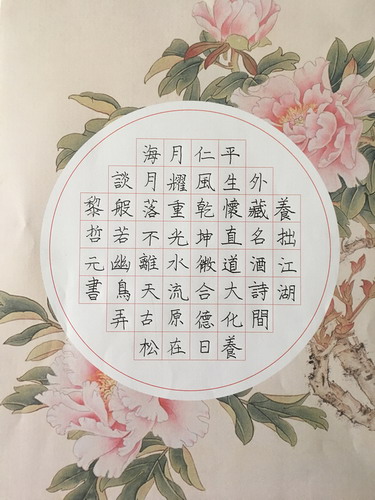 養拙江湖
外藏名酒詩間
平生懷直道大化養
仁風乾坤微合德日
月耀重光水流原在
海月落不離天古松
談般若幽鳥弄
黎哲元書